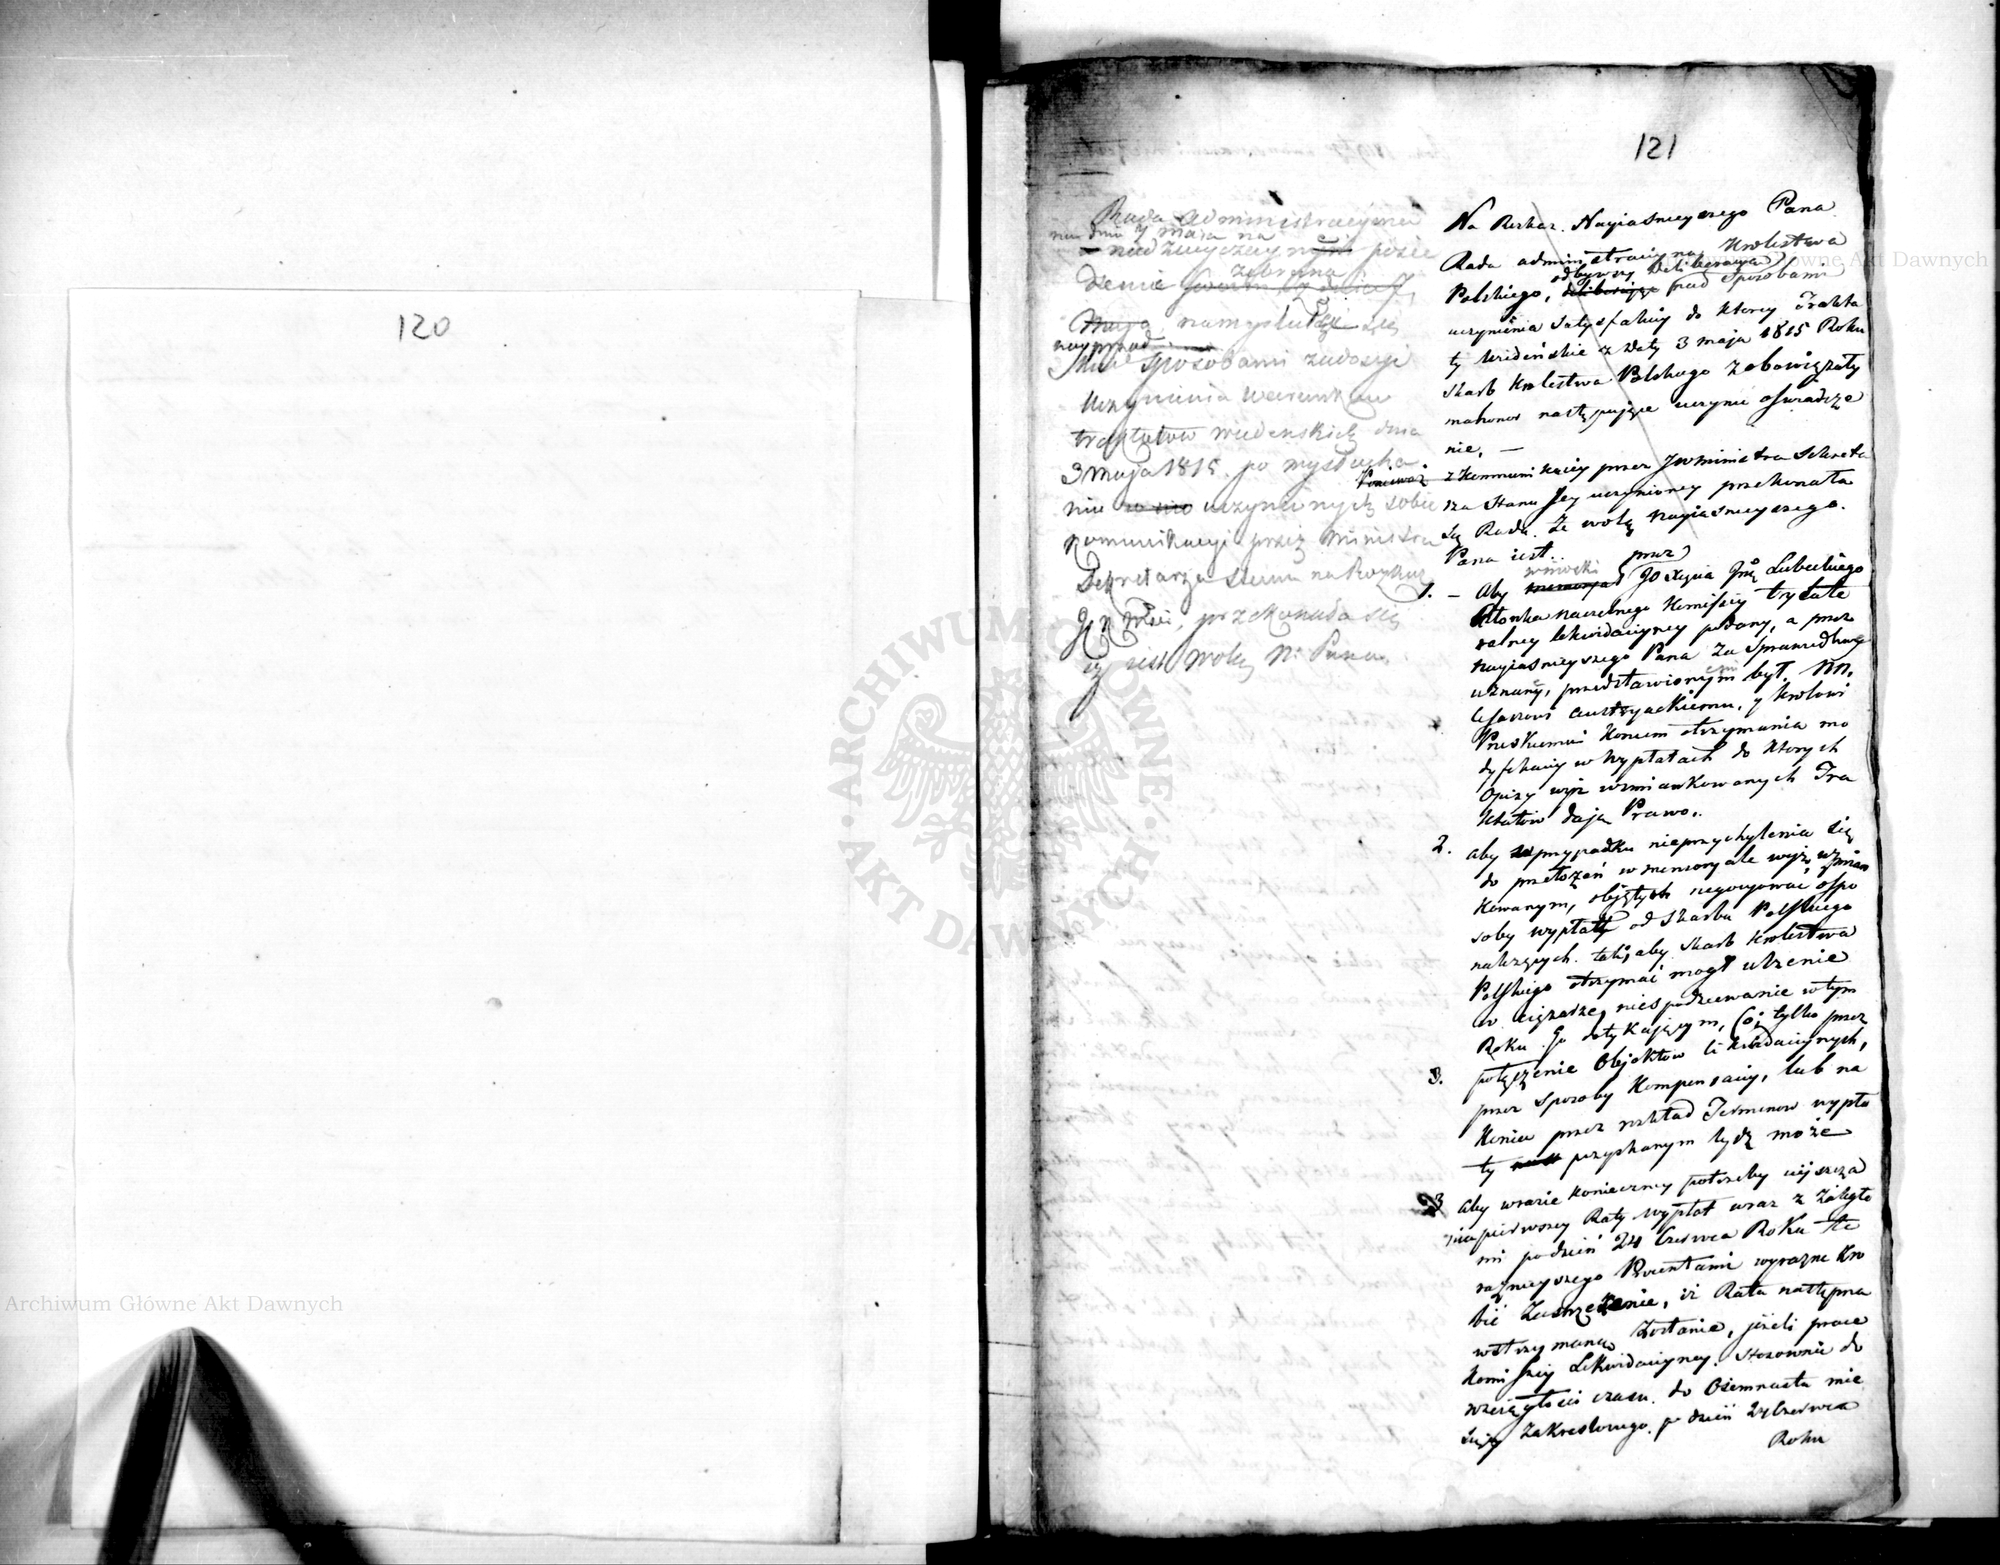 120
121
Rada Administracyina
na dniu 7 maja na
nadzwyczaynem posie
dzenie zebrana
Maja, namysłu
nayprzod
sposobami zadosyć
Uczynienia warunkom
traktatow wiedeńskich dnia
3 Maja 1815. po wysłucha
niu uczynionych sobie
komunikacyi przez Ministra
Sekretarza Stanu na Rozkaz
przekonała się
iż jest wolą N. Pana
Na Rozkaz Nayiaśnieyszego Pana
Rada administracyina Krolestwa
odbywszy deliberacye
Polskiego, deliberując nad sposobami
uczynienia satysfakcyi do ktorey Trakta
ty wiedeńskie z daty 3 maja 1815 Roku
skarb Krolestwa Polskiego zobowiązały
mahonor następujące uczynić oświadcze
nie. —
Ponieważ z kommunikacyi przez JW Ministra Sekreta
rza Stanu Jey uczynioney przekonała
się Rada. Że wolą Nayiaśnieyszego.
Pana iest.
wniosek przez
1. – Aby Xcia Lubeckiego
Członka naczelnego Komissyi trylate
ralney likwidacyiney podany, a przez
Nayiaśnieyszego Pana za sprawiedliwy
uznany, przedstawionym był NN.
Cesarzowi Austryackiemu, y Krolowi
Pruskiemu koncem otrzymania mo
dyfikacyi w wypłatach do ktorych
Opisy wyż wzmiankowanych Tra
ktatow daią Prawo.
2. Aby w przypadku nieprzychylenia się
do przełożeń w memoryale wyż wzmian
kowanym, objętych negocyować o spo
soby wypłaty od Skarbu Polskiego
należących. tak, aby Skarb Krolestwa
Polskiego otrzymać mogł ulżenie
w ciężarze niespodziewanie w tym
Roku Go dotykaiącym, Co tylko przez
3. połączenie Objektow likwidacyinych,
przez sposoby kompensacyi, lub na
koniec przez rozkład Terminow wypła
ty pozyskanym bydź może
3 Aby w razie konieczney potrzeby uiszcza
nia pierwszey Raty wypłat wraz z zaległe
mi po dzień 24 Czerwca Roku te
raźnieyszego Procentami wyraźne Zro
bić Zastrzeżenie, iż Rata następna
wstrzymaną Zostanie, jeżeli prace
Komissyi Likwidacyiney stosownie do
przeciągłości czasu do Ośmnastu mie
sięcy zakreślonego po dzień 24 Czerwca
Roku
Archiwum Główne Akt Dawnych
Archiwum Główne Akt Dawnych
ARCHIWUM GŁÓWNE · AKT DAWNYCH ·